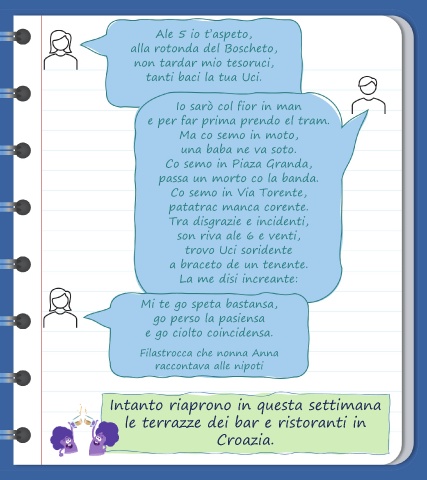 Ale 5 io t'aspeto,
alla rotonda del Boscheto,
non tardar mio tesoruci,
tanti baci la tua Uci.
Io sarò col fior in man
e per far prima prendo el tram.
Ma co semo in moto,
una baba ne va soto.
Co semo in Piaza Granda,
passa un morto co la banda.
Co semo in Via Torente,
patatrac manca corente.
Tra disgrazie e incidenti,
son riva ale 6 e venti,
trovo Uci soridente
a braceto de un tenente.
La me disi increante:
Mi te go speta bastansa,
go perso la pasiensa
e go ciolto coincidensa.
Filastrocca che nonna Anna
raccontava alle nipoti
Intanto riaprono in questa settimana
le terrazze dei bar e ristoranti in
Croazia.